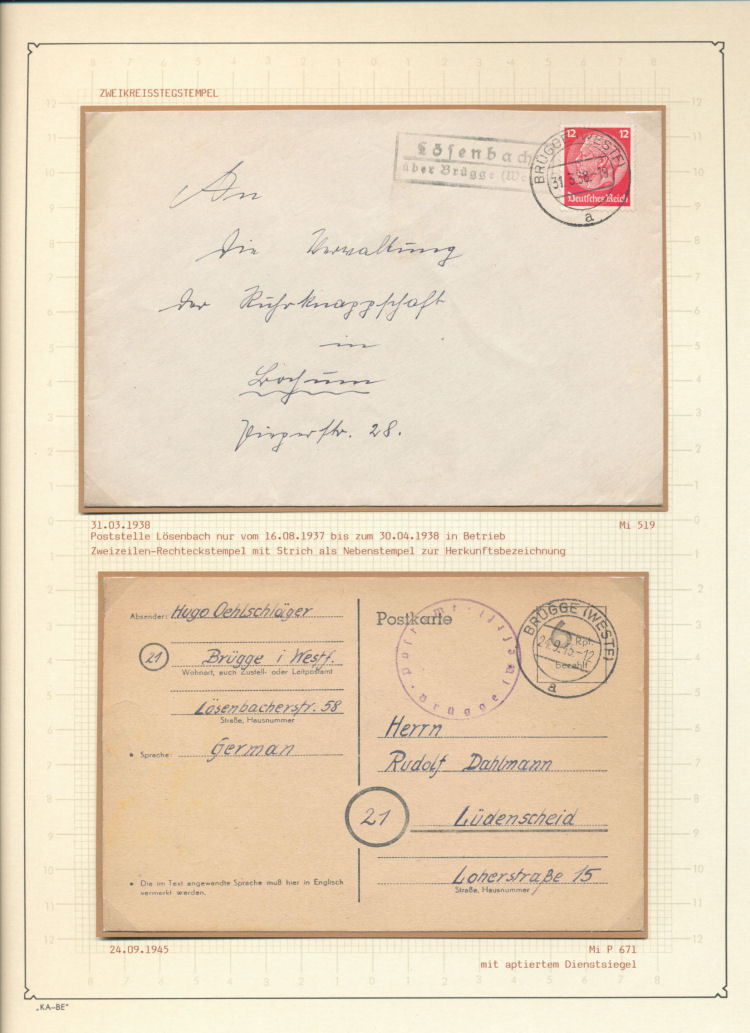 ZWEIKREISSTEGSTEMPEL
Lösenbach
über Brügge (We
BRÜGGE (WESTF)
31.3.38.-18
a
12 12
Deutsches Reich
An
die Verwaltung
der Ruhrknappschaft
in
Bochum
Pieperstr. 28.
31.03.1938
Mi 519
Poststelle Lösenbach nur vom 16.08.1937 bis zum 30.04.1938 in Betrieb
Zweizeilen-Rechteckstempel mit Strich als Nebenstempel zur Herkunftsbezeichnung
Absender: Hugo Oehlschläger
21
Brügge i Westf.
Wohnort, auch Zustell- oder Leitpostamt
Lösenbacherstr. 58
Straße, Hausnummer
• Sprache: German
• Die im Text angewandte Sprache muß hier in Englisch
vermerkt werden.
Postkarte
Brügge
BRÜGGE (WESTF)
24.9.45.-12
a
6 Rpf.
bezahlt
Herrn
Rudolf Dahlmann
21
Lüdenscheid
Loherstraße 15
Straße, Hausnummer
24.09.1945
Mi P 671
mit aptiertem Dienstsiegel
„KA-BE"